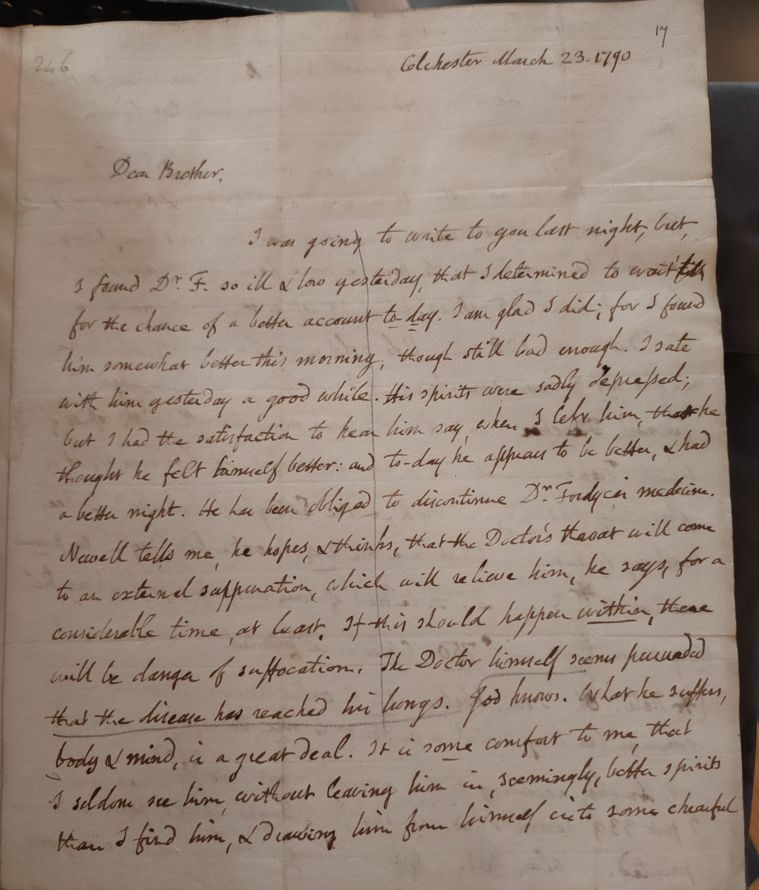 17
246
Colchester March 23. 1790
Dear Brother,
I was going to write to you last night, but,
I found Dr. F. so ill & low yesterday, that I determined to wait
for the chance of a better account to-day. I am glad I did; for I found
him somewhat better this morning, though still bad enough. I sate
with him yesterday a good while. His spirits were sadly depressed;
but I had the satisfaction to hear him say, when I left him, that he
thought he felt himself better: and to-day he appears to be better, & had
a better night. He has been obliged to discontinue Dr. Fordyce's medicine.
Newell tells me, he hopes, & thinks, that the Doctor's throat will come
to an external suppuration, which will relieve him, he says, for a
considerable time, at least. If this should happen within, there
will be danger of suffocation. The Doctor himself seems persuaded
that the disease has reached his lungs. God knows. What he suffers,
body & mind, is a great deal. It is some comfort to me, that
I seldom see him, without leaving him in, seemingly, better spirits
than I find him, & drawing him from himself into some chearful